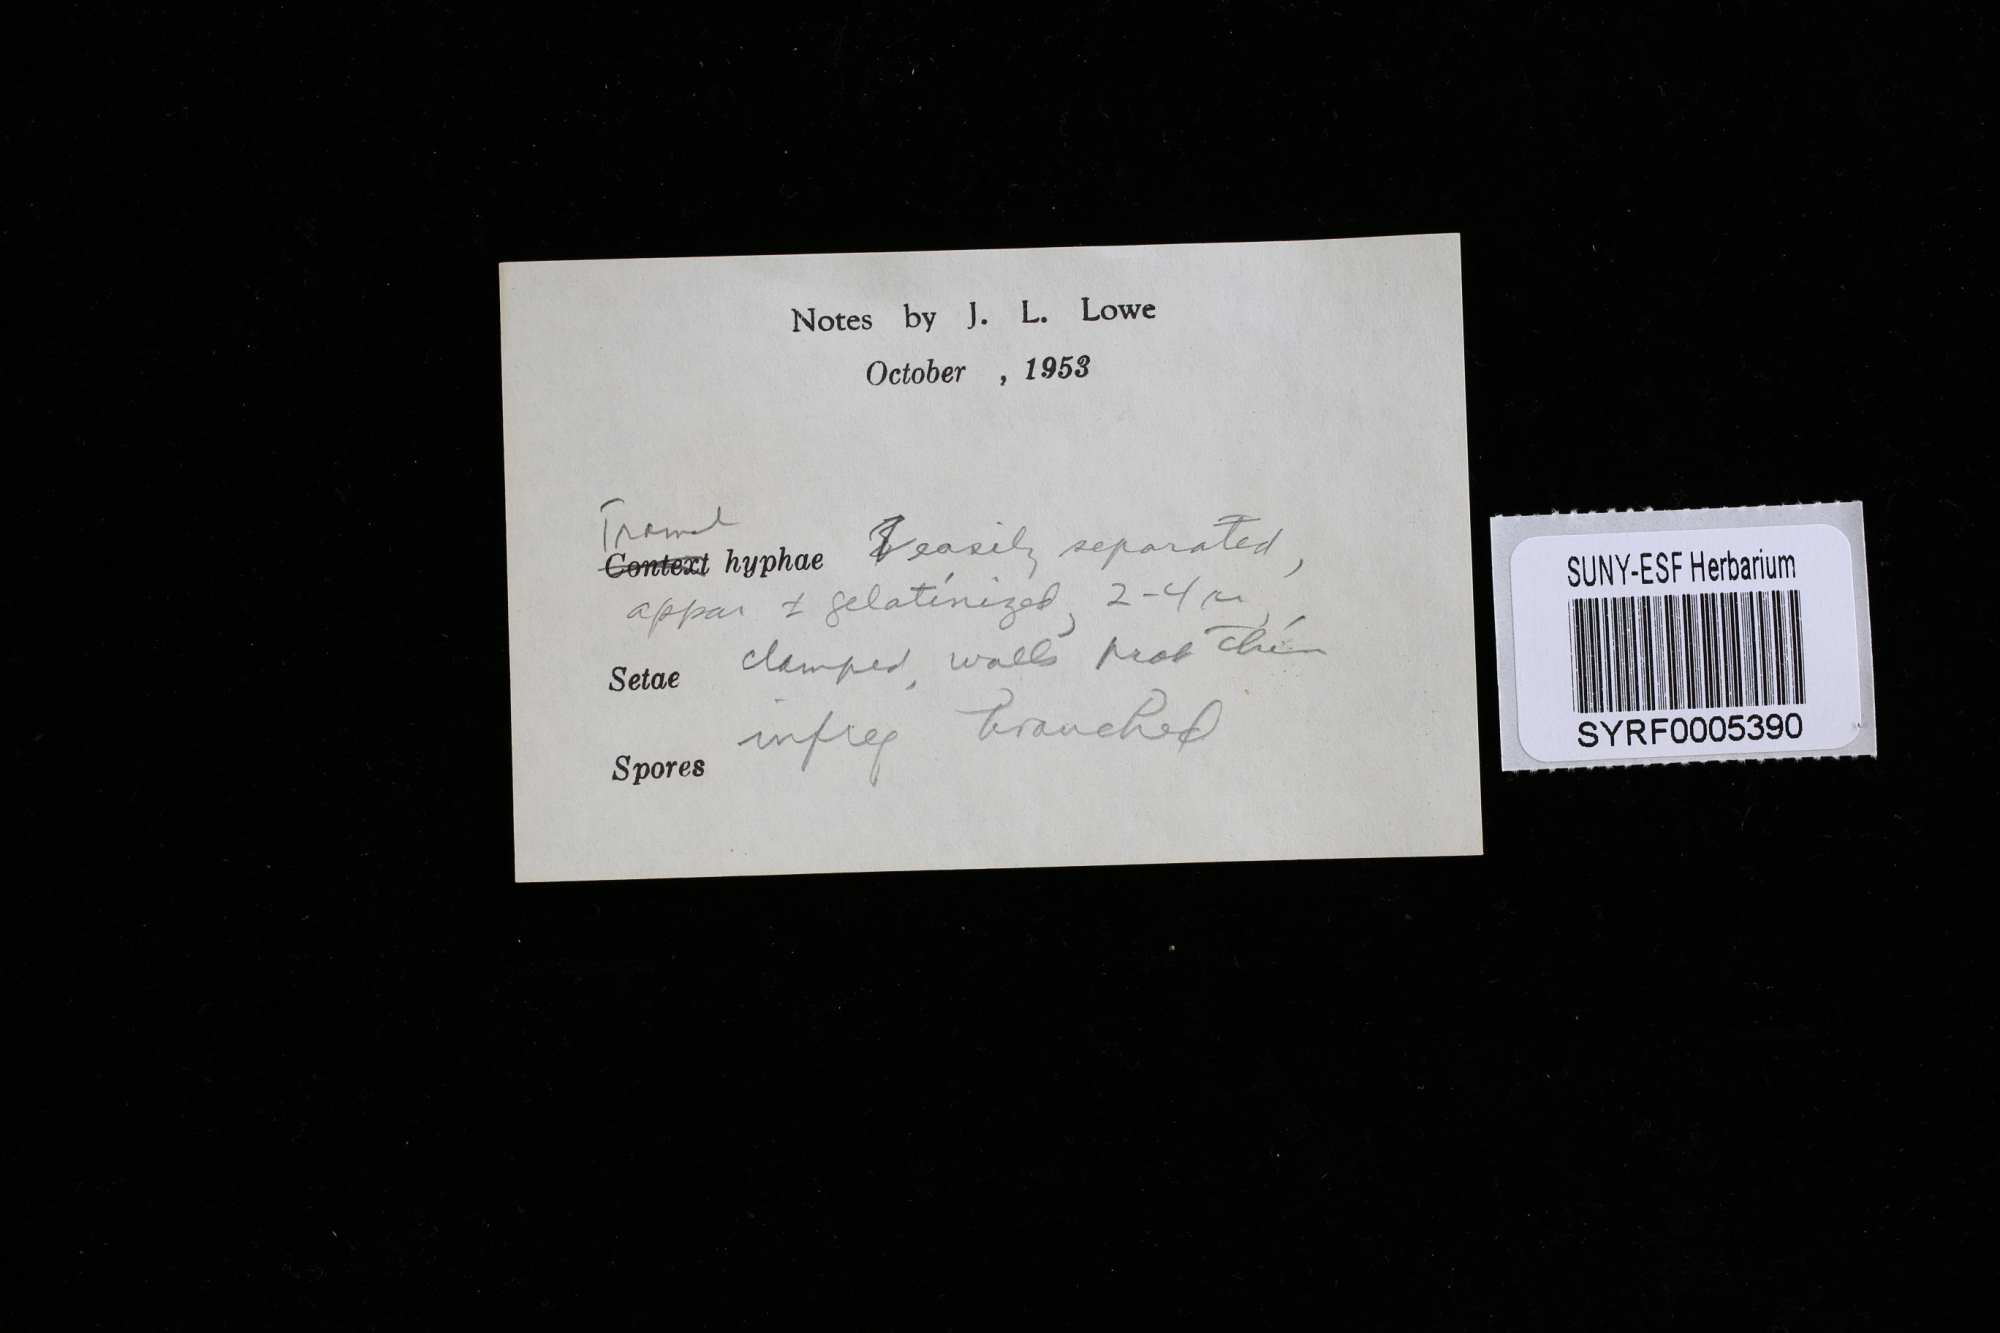 Notes by J. L. Lowe
October , 1953
Tramal
Context hyphae easily separated,
appar ± gelatinized, 2-4 μ,
Setae clamped, walls prob thin
infreq branched
Spores
SUNY-ESF Herbarium
SYRF0005390